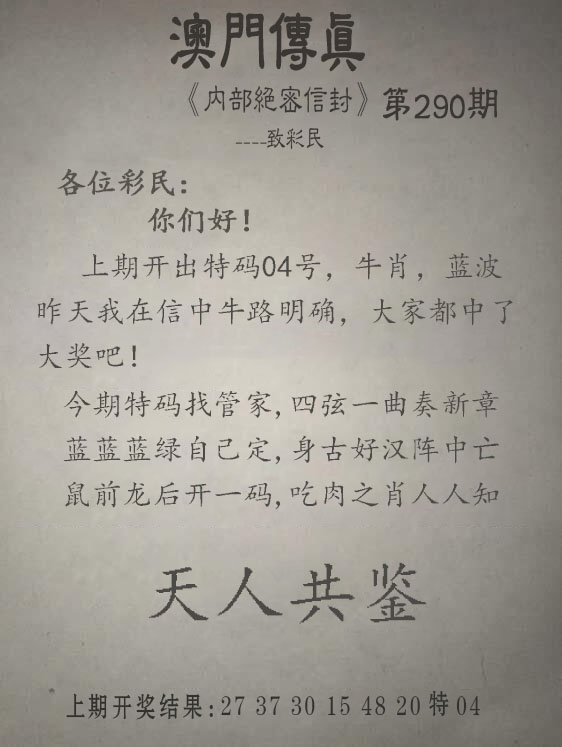 澳門傳真
《内部絕密信封》第290期
----致彩民
各位彩民:
你们好!
上期开出特码04号，牛肖，蓝波
昨天我在信中牛路明确，大家都中了
大奖吧!
今期特码找管家,四弦一曲奏新章
蓝蓝蓝绿自己定,身古好汉阵中亡
鼠前龙后开一码,吃肉之肖人人知
天人共鉴
上期开奖结果:27 37 30 15 48 20 特 04